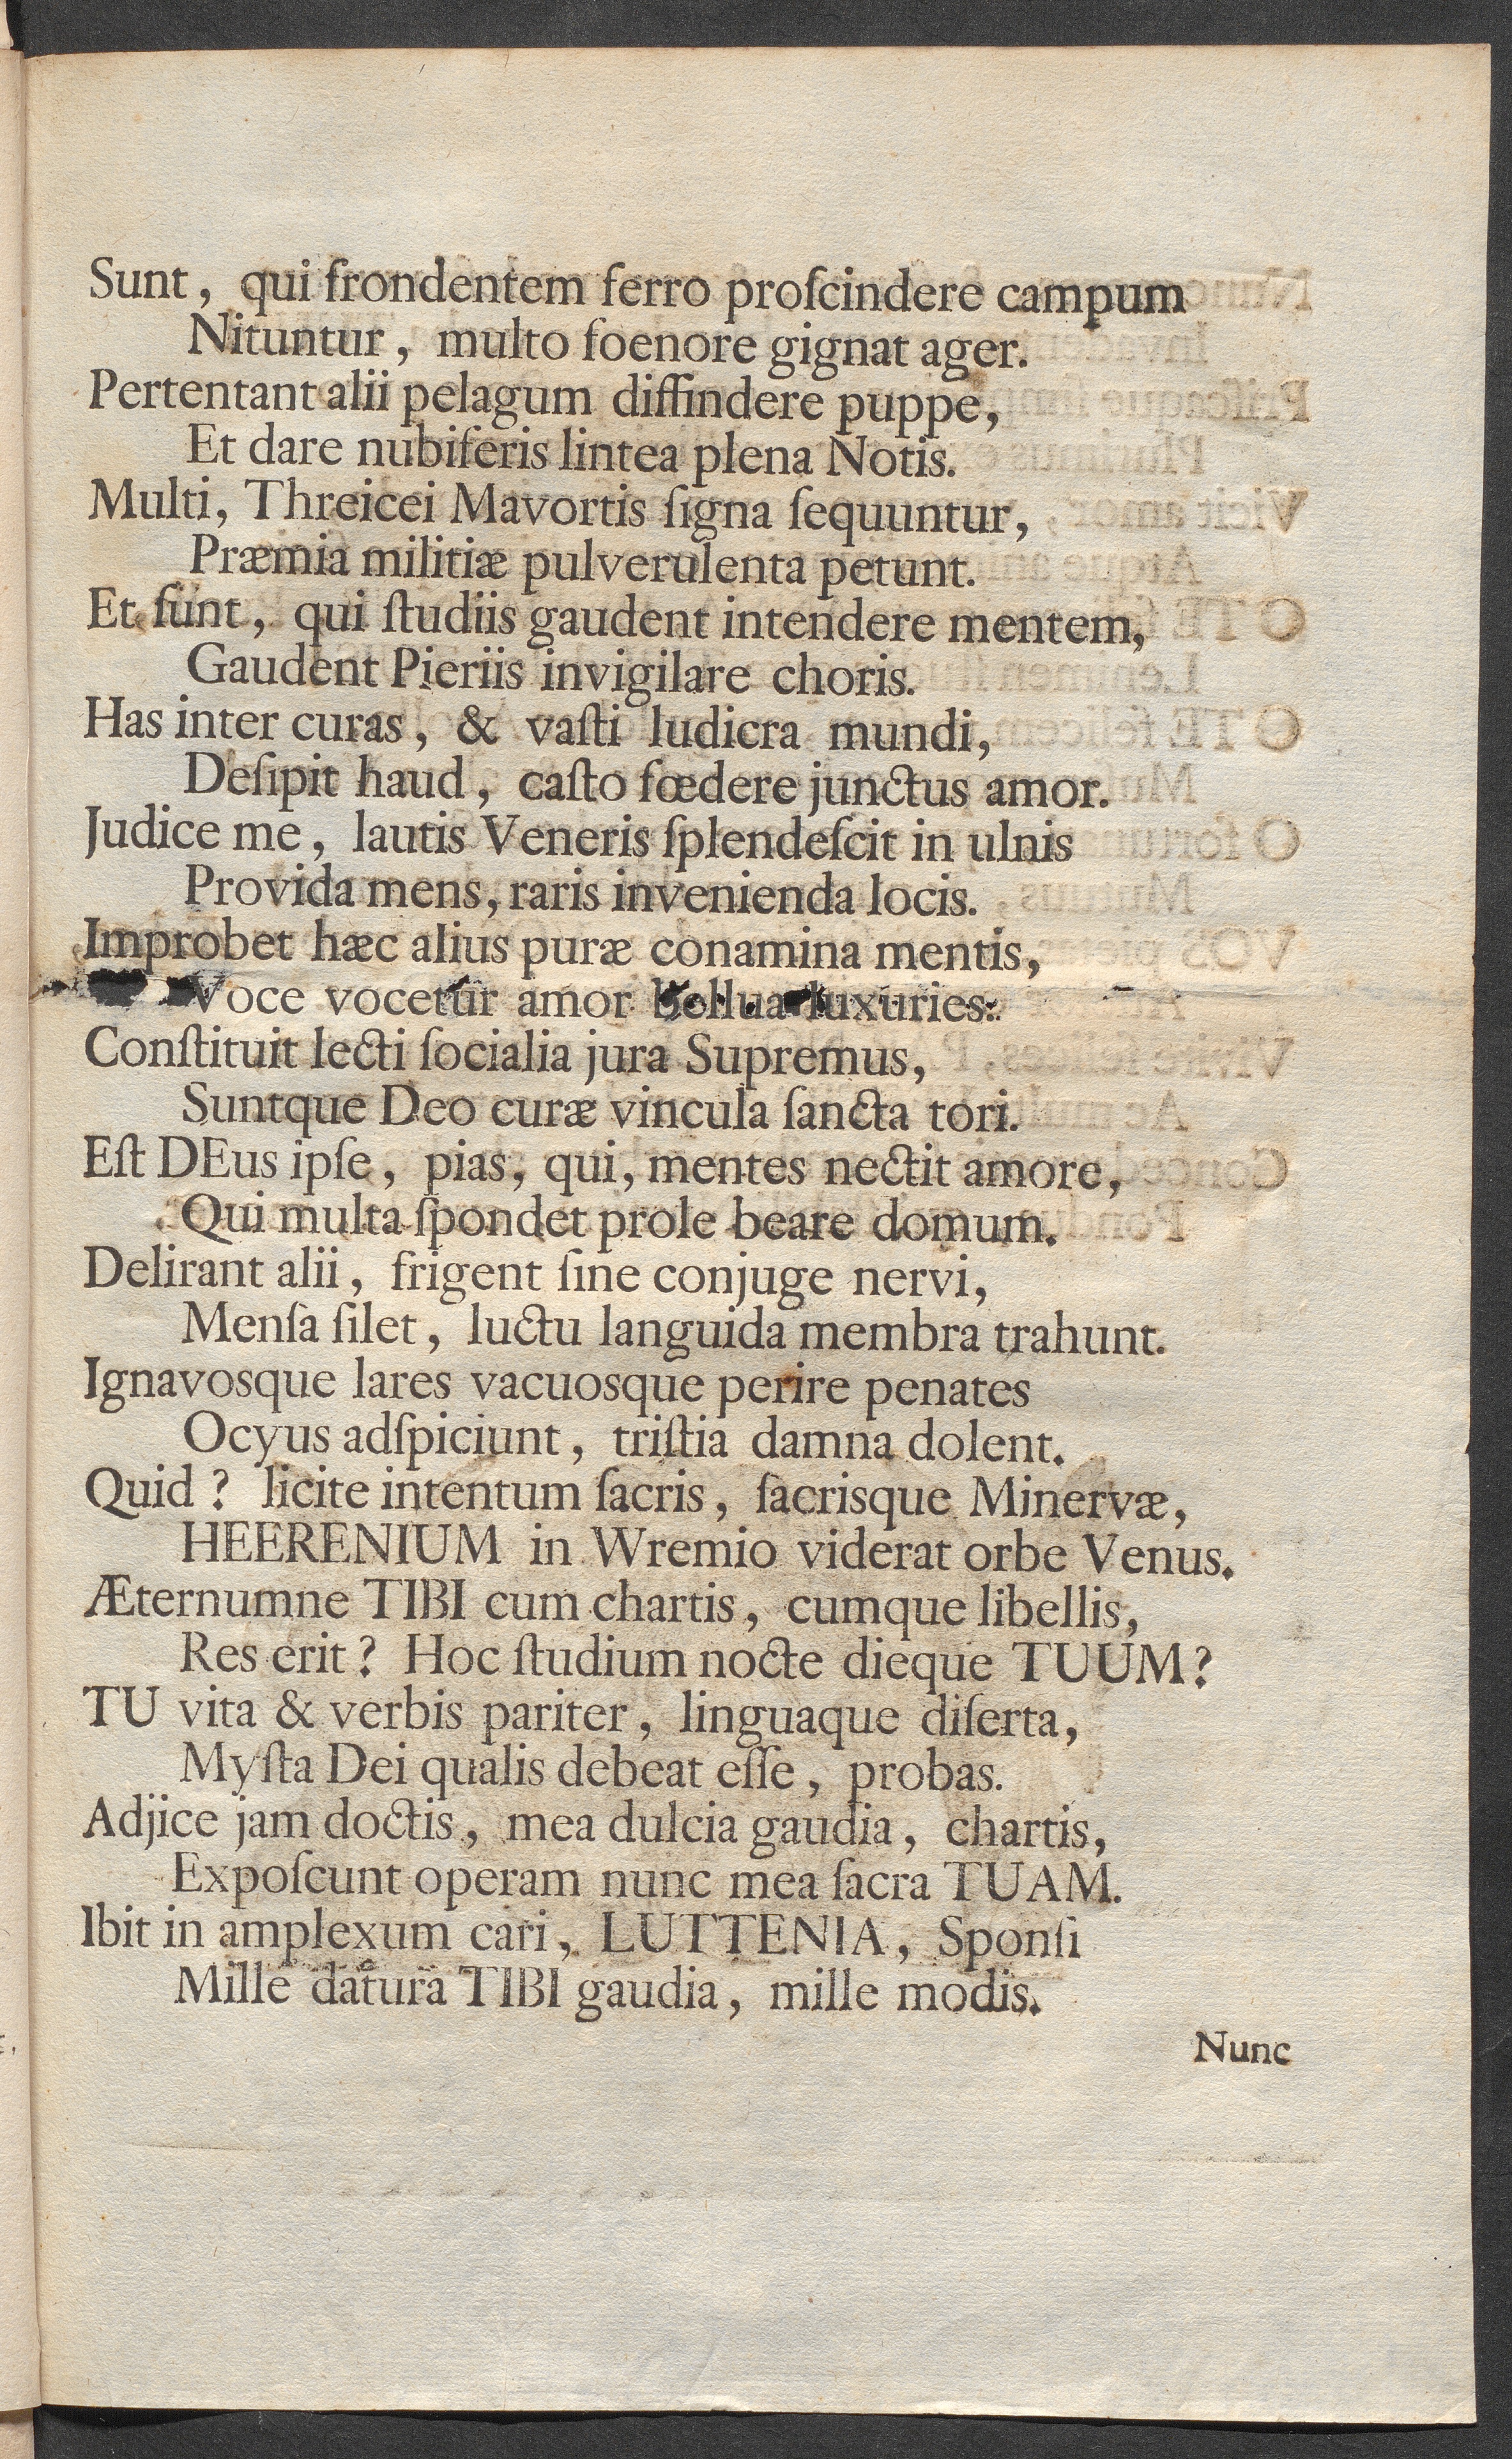 Sunt, qui frondentem ferro proſcindere campum
Nituntur, multo foenore gignat ager.
Pertentant alii pelagum diffindere puppe,
Et dare nubiferis lintea plena Notis.
Multi, Threicei Mavortis ſigna ſequuntur,
Præmia militiæ pulverulenta petunt.
Et ſunt, qui ſtudiis gaudent intendere mentem,
Gaudent Pieriis invigilare choris.
Has inter curas, & vaſti ludicra mundi,
Deſipit haud, caſto fœdere junctus amor.
Judice me, lautis Veneris ſplendeſcit in ulnis
Provida mens, raris invenienda locis.
Improbet hæc alius puræ conamina mentis,
Voce vocetur amor bellua luxuries:
Conſtituit lecti ſocialia jura Supremus,
Suntque Deo curæ vincula ſancta tori.
Eſt DEus ipſe, pias, qui, mentes nectit amore,
Qui multa ſpondet prole beare domum.
Delirant alii, frigent ſine conjuge nervi,
Menſa ſilet, luctu languida membra trahunt.
Ignavosque lares vacuosque perire penates
Ocyus adſpiciunt, triſtia damna dolent.
Quid? licite intentum ſacris, ſacrisque Minervæ,
HEERENIUM in Wremio viderat orbe Venus.
Æternumne TIBI cum chartis, cumque libellis,
Res erit? Hoc ſtudium nocte dieque TUUM?
TU vita & verbis pariter, linguaque diſerta,
Myſta Dei qualis debeat eſſe, probas.
Adjice jam doctis, mea dulcia gaudia, chartis,
Expoſcunt operam nunc mea ſacra TUAM.
Ibit in amplexum cari, LUTTENIA, Sponſi
Mille datura TIBI gaudia, mille modis.
Nunc